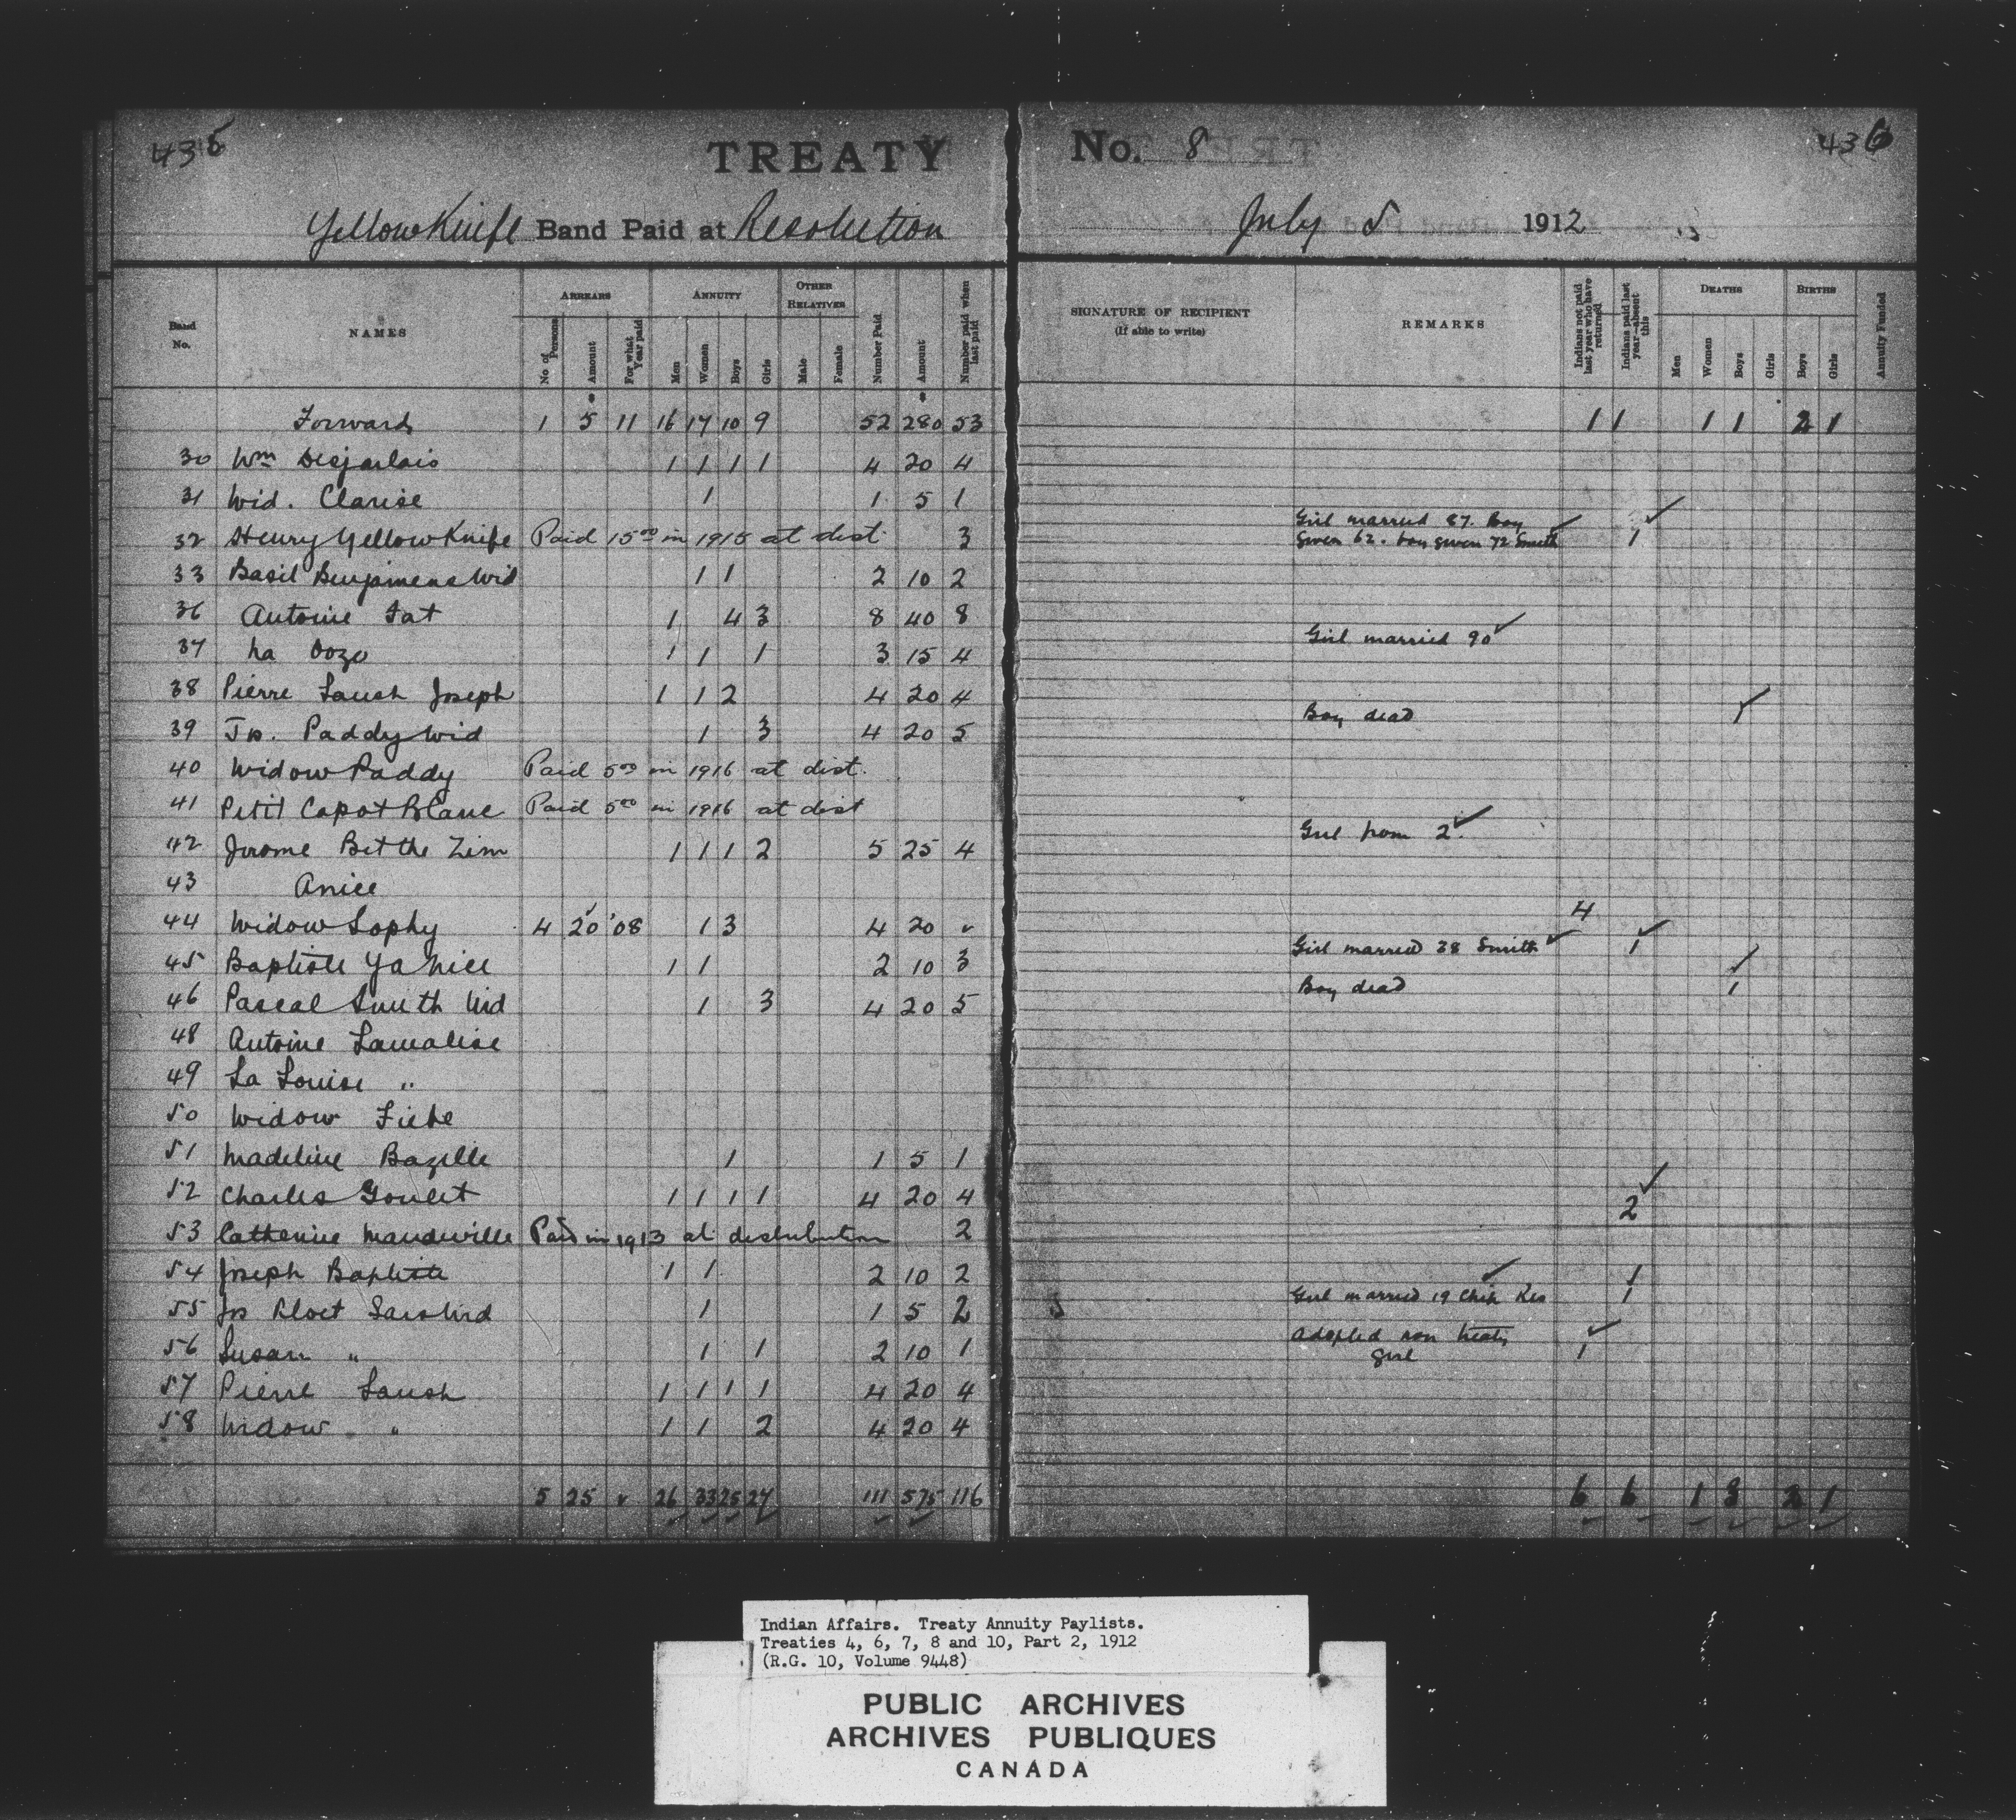 435 TREATY No. 8 436
YellowKnife Band Paid at Resolution July 5 1912
Band No. NAMES ARREARS ANNUITY OTHER RELATIVES Number Paid Amount Number paid when last paid SIGNATURE OF RECIPIENT (If able to write) REMARKS Indians not paid last year who have returned Indians paid last year—absent this DEATHS BIRTHS Annuity Funded
No of Persons Amount For what Year paid Men Women Boys Girls Male Female Men Women Boys Girls Boys Girls
Forward 1 5 11 16 17 10 9 52 280 53 1 1 1 1 2 1
30 Wm Desjarlais 1 1 1 1 4 20 4
31 Wid. Clarise 1 1 5 1
32 Henry YellowKnife Paid 15.00 in 1915 at dist. 3 Girl married 87. Boy
Given 62. boy given 72 Smith 1
33 Basil Benjamens Wid 1 1 2 10 2
36 Antoine Fat 1 4 3 8 40 8
37 1 1 1 3 15 4 Girl married 90
38 Pierre Laush Joseph 1 1 2 4 20 4
39 Jos. Paddy Wid 1 3 4 20 5 Boy dead 1
40 Widow Paddy Paid 5.00 in 1916 at dist.
41 Petit Capot Blanc Paid 5.00 in 1916 at dist
42 Jerome Bet the Zim 1 1 1 2 5 25 4 Girl from 2.
43 Anice
44 Widow Sophy 4 20 '08 1 3 4 20 4
45 Baptiste Ya Nice 1 1 2 10 3 Girl married 38 Smith 1
46 Pascal Smith Wid 1 3 4 20 5 Boy dead 1
48 Antoine Lamalise
49 La Louise "
50 Widow
51 Madeline Bazille 1 1 5 1
52 Charles Goulet 1 1 1 1 4 20 4
53 Catherine Mandeville Paid in 1913 at distribution 2 2
54 Joseph Baptiste 1 1 2 10 2 1
55 Jos 1 1 5 2 Girl married 19 Chip Res 1
56 Susan " 1 1 2 10 1 Adopted non treaty
girl 1
57 Pierre Laush 1 1 1 1 4 20 4
58 Widow " 1 1 2 4 20 4
5 25 26 33 25 27 111 575 116 6 6 1 3 2 1
Indian Affairs. Treaty Annuity Paylists.
Treaties 4, 6, 7, 8 and 10, Part 2, 1912
(R.G. 10, Volume 9448)
PUBLIC ARCHIVES
ARCHIVES PUBLIQUES
CANADA